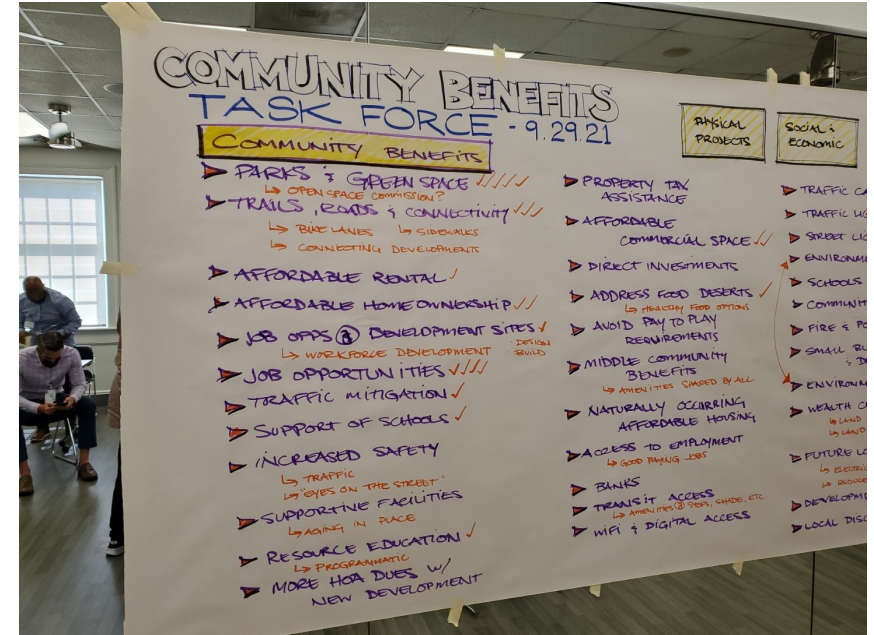 COMMUNITY BENEFITS
TASK FORCE - 9.29.21
COMMUNITY BENEFITS
PARKS & GREEN SPACE ✓✓✓✓
↳ OPEN SPACE COMMISSION?
TRAILS, ROADS & CONNECTIVITY ✓✓✓
↳ BIKE LANES ↳ SIDEWALKS
↳ CONNECTING DEVELOPMENTS
AFFORDABLE RENTAL ✓
AFFORDABLE HOMEOWNERSHIP ✓✓
JOB OPPS @ DEVELOPMENT SITES ✓
↳ WORKFORCE DEVELOPMENT DESIGN
BUILD
JOB OPPORTUNITIES ✓✓✓✓
TRAFFIC MITIGATION ✓
SUPPORT OF SCHOOLS ✓
INCREASED SAFETY
↳ TRAFFIC
↳ "EYES ON THE STREET"
SUPPORTIVE FACILITIES
↳ AGING IN PLACE
RESOURCE EDUCATION ✓
↳ PROGRAMMATIC
MORE HOA DUES W/
NEW DEVELOPMENT
PROPERTY TAX
ASSISTANCE
AFFORDABLE
COMMERCIAL SPACE ✓✓
DIRECT INVESTMENTS
ADDRESS FOOD DESERTS ✓
↳ HEALTHY FOOD OPTIONS
AVOID PAY TO PLAY
REQUIREMENTS
MIDDLE COMMUNITY
BENEFITS
↳ AMENITIES SHARED BY ALL
NATURALLY OCCURRING
AFFORDABLE HOUSING
ACCESS TO EMPLOYMENT
↳ GOOD PAYING JOBS
BANKS
TRANSIT ACCESS
↳ AMENITIES @ STOPS, SHADE, ETC.
WIFI & DIGITAL ACCESS
PHYSICAL
PROJECTS
SOCIAL &
ECONOMIC
TRAFFIC CA
TRAFFIC LIG
STREET LIG
ENVIRONM
SCHOOLS
COMMUNIT
FIRE & PO
SMALL BU
& D
ENVIRONM
WEALTH C
↳ LAND
↳ LAND
FUTURE LO
↳ ELECTRIC
↳ REDUCE
DEVELOPME
LOCAL DISC